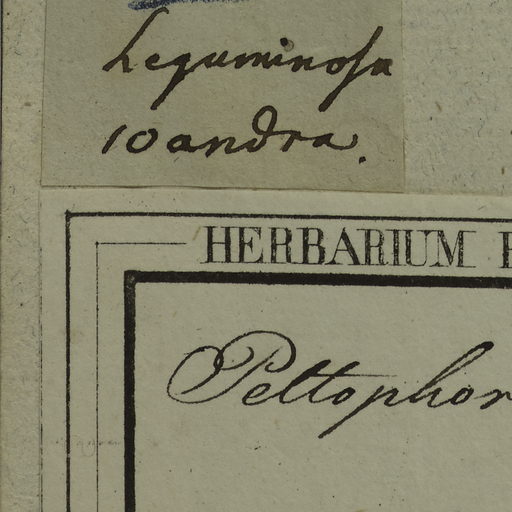 Leguminosa
10andra.
HERBARIUM
Peltophor